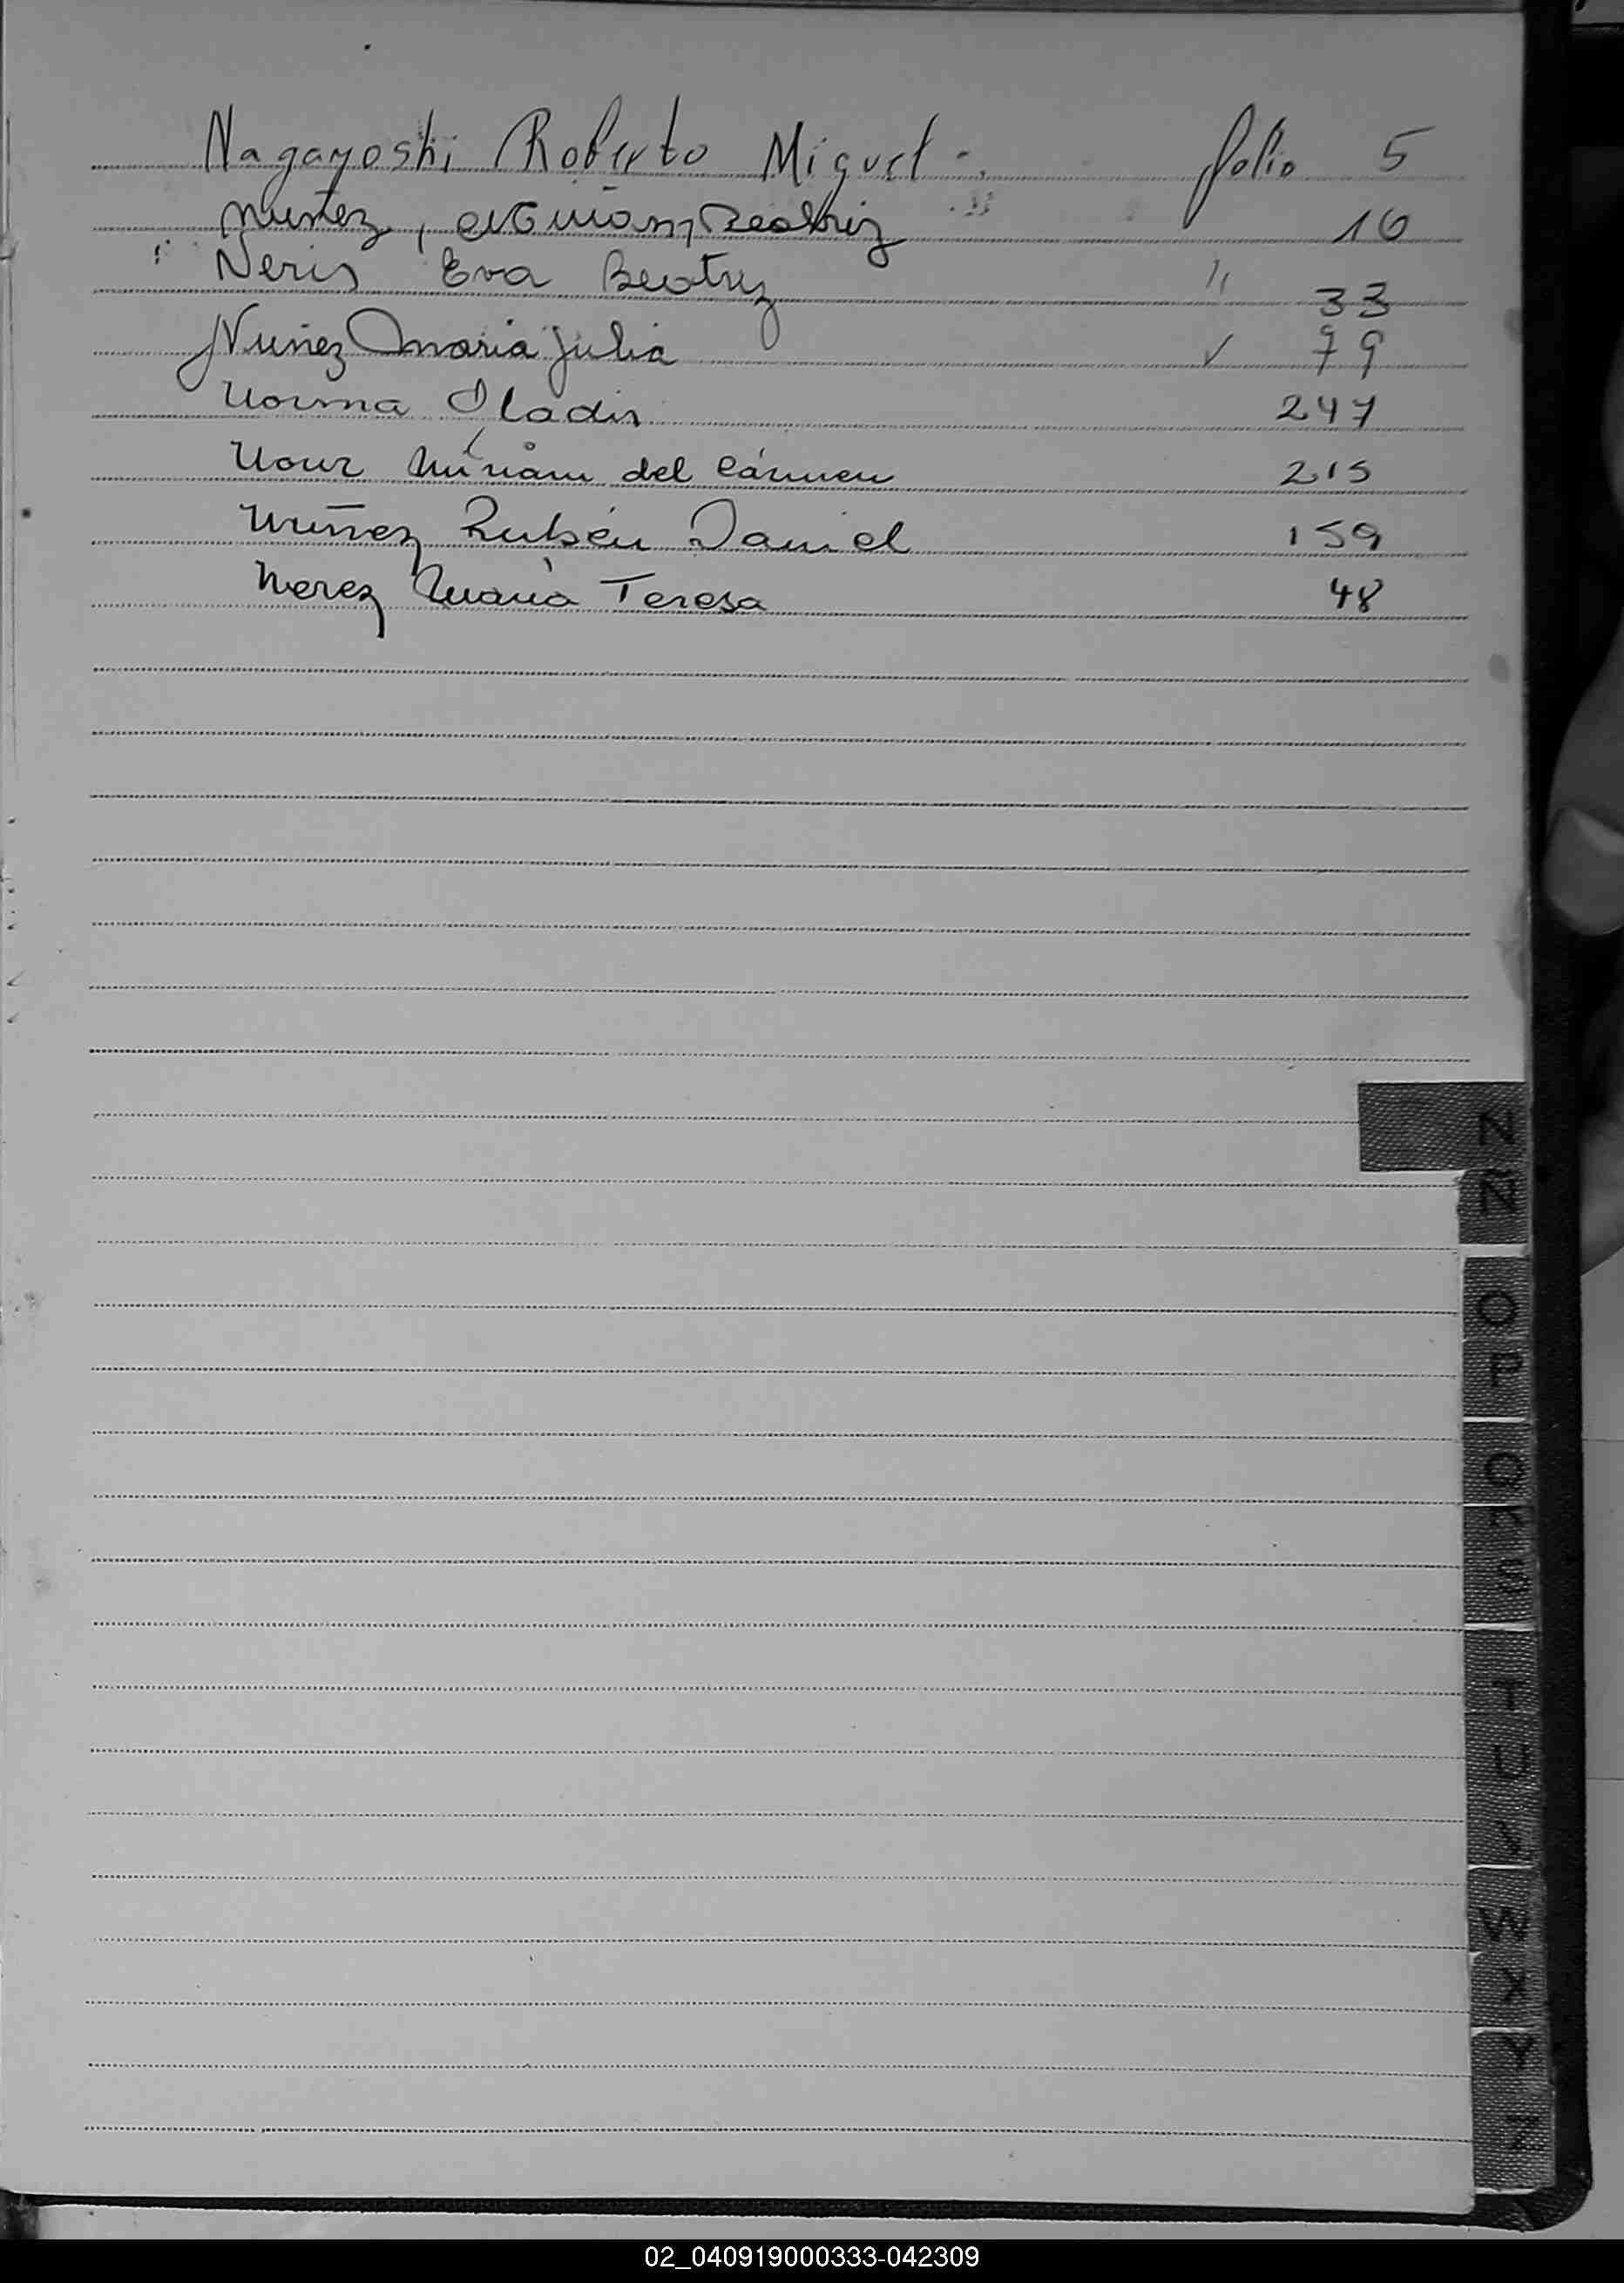 Nagayoshi Roberto Miguel - folio 5
Nuñez, Miriam Beatriz 10
Neris Eva Beatriz " 33
Nuñez Maria Julia ✓ 79
Norma Gladis 247
Miriam del Cármen 215
Nuñez Rubén Daniel 159
Nerez María Teresa 48
N
Ñ
O
P
Q
R
S
T
U
W
X
Y
Z
02_040919000333-042309